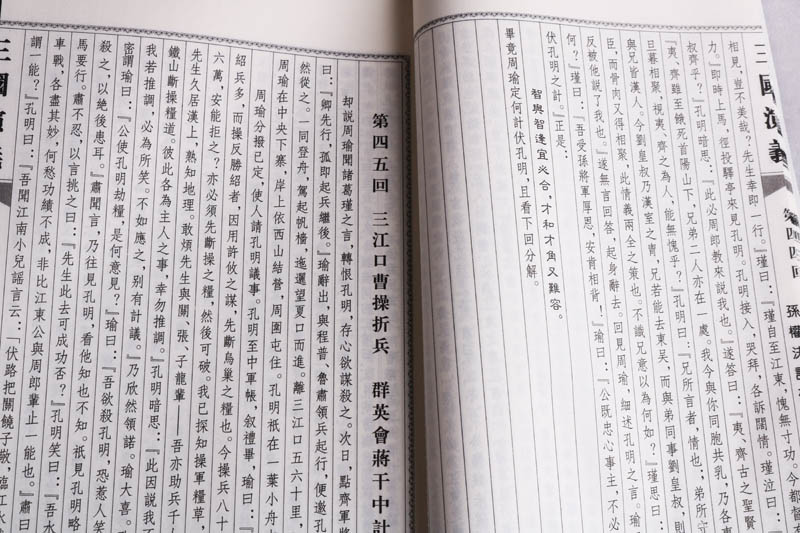 三國演義 第四四回 孫權決計
相見,豈不美哉?先生幸即一行。』瑾曰:『瑾自至江東,愧無寸功。今都督有
力。』即時上馬,徑投驛亭來見孔明。孔明接入,哭拜,各訴闊情。瑾泣曰:
叔齊乎?』孔明暗思:『此必周郎教來說我也。』遂答曰:『夷、齊古之聖賢
『夷、齊雖至餓死首陽山下,兄弟二人亦在一處。我今與你同胞共乳,乃各事
旦暮相聚,視夷、齊之為人,能無愧乎?』孔明曰:『兄所言者,情也;弟所守
與兄皆漢人。今劉皇叔乃漢室之冑,兄若能去東吳,而與弟同事劉皇叔,則
臣,而骨肉又得相聚,此情義兩全之策也。不識兄意以為何如?』瑾思曰:
反被他說了我也。』遂無言回答,起身辭去。回見周瑜,細述孔明之言。瑜
何?』瑾曰:『吾受孫將軍厚恩,安肯相背!』瑜曰:『公既忠心事主,不必
伏孔明之計。』正是:
智與智逢宜必合,才和才角又難容。
畢竟周瑜定何計伏孔明,且看下回分解。
第四五回 三江口曹操折兵 群英會蔣干中計
却説周瑜聞諸葛瑾之言,轉恨孔明,存心欲謀殺之。次日,點齊軍將
曰:『卿先行,孤即起兵繼後。』瑜辭出,與程普、魯肅領兵起行,便邀孔
然從之。一同登舟,駕起帆檣,迤邐望夏口而進。離三江口五六十里,
周瑜在中央下寨,岸上依西山結營,周圍屯住。孔明祇在一葉小舟
周瑜分撥已定,使人請孔明議事。孔明至中軍帳,敘禮畢,瑜曰:『
紹兵多,而操反勝紹者,因用許攸之謀,先斷烏巢之糧也。今操兵八十
六萬,安能拒之?亦必須先斷操之糧,然後可破。我已探知操軍糧草,
先生久居漢上,熟知地理。敢煩先生與關、張、子龍輩——吾亦助兵千人
鐵山斷操糧道。彼此各為主人之事,幸勿推調。』孔明暗思:『此因說我不
我若推調,必為所笑。不如應之,别有計議。』乃欣然領諾。瑜大喜。
密謂瑜曰:『公使孔明劫糧,是何意見?』瑜曰:『吾欲殺孔明,恐惹人笑
殺之,以絶後患耳。』肅聞言,乃往見孔明,看他知也不知。祇見孔明略
馬要行。肅不忍,以言挑之曰:『先生此去可成功否?』孔明笑曰:『吾水
車戰,各盡其妙,何愁功績不成,非比江東公與周郎輩止一能也。』肅曰
謂一能?』孔明曰:『吾聞江南小兒謠言云:「伏路把關饒子敬,臨江水
三國演義